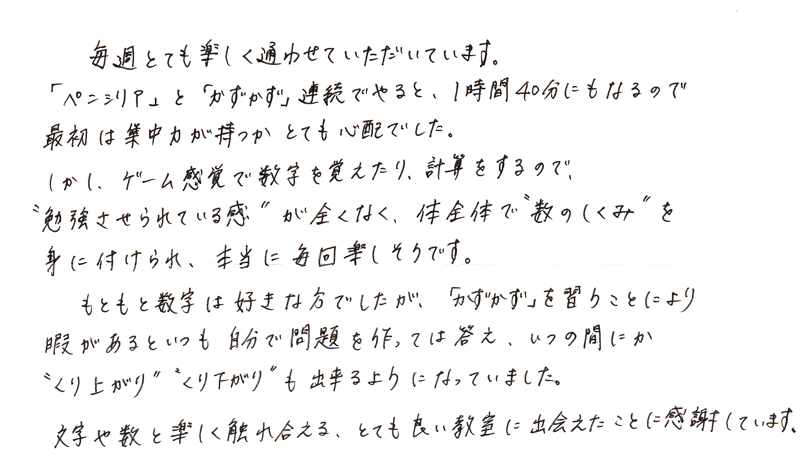 毎週とても楽しく通わせていただいています。
「ペンシリア」と「かずかず」連続でやると、1時間40分にもなるので
最初は集中力が持つかとても心配でした。
しかし、ゲーム感覚で数字を覚えたり、計算をするので、
“勉強させられている感”が全くなく、体全体で“数のしくみ”を
身に付けられ、本当に毎回楽しそうです。
もともと数字は好きな方でしたが、「かずかず」を習うことにより
暇があるといつも自分で問題を作っては答え、いつの間にか
“くり上がり”“くり下がり”も出来るようになっていました。
文字や数と楽しく触れ合える、とても良い教室に出会えたことに感謝しています。